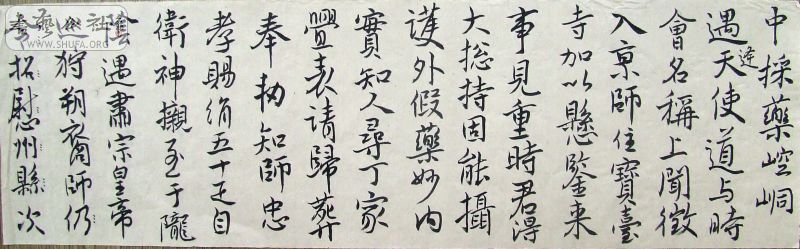 中採藥崆峒
遇逢天使道与時
會名稱上聞徵
入京師住寶臺
寺加以懸鑒来
事見重時君得
大総持固能攝
護外假藥妙内
實知人尋丁家
舋表請歸葬
奉勅知師忠
孝賜絹五十疋自
衛神櫬至于隴
陰遇肅宗皇帝
巡狩朔裔師仍
招慰州縣次
WWW.SHUFA.ORG